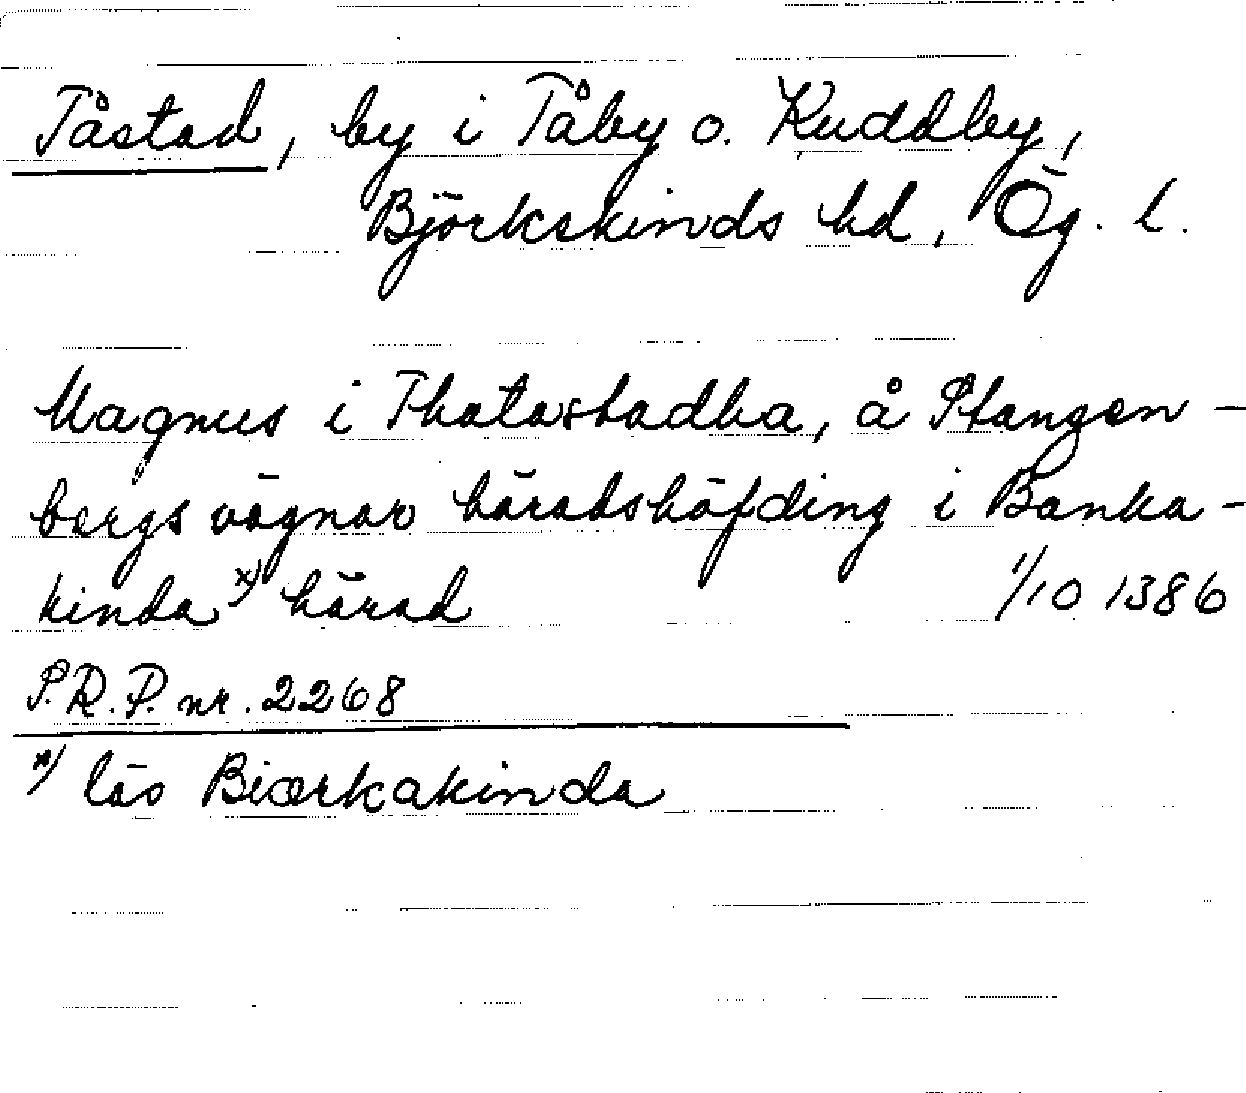 Tåstad, by i Tåby o. Kuddby,
Björkekinds hd, Ög. l.
Magnus i Thatastadha, å Stangen-
bergs vägnar häradshöfding i Banka-
kinda x) härad 1/10 1386
S.R.P. nr. 2268
x) läs Biærkakinda